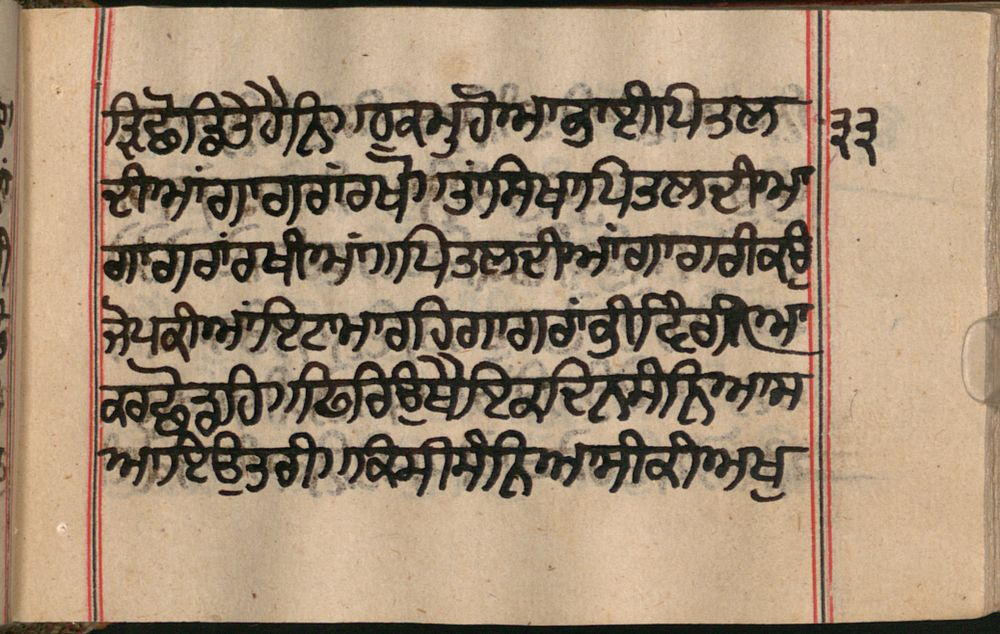 ੜਿ ਛੋਡਿਤੇ ਹੈਨਿ ।। ਹੁਕਮੁ ਹੋਆ ਭਾਈ ਪਿਤਲ ੩੩
ਦੀਆਂ ਗਾਗਰਾਂ ਰਖੋ ।। ਤਾਂ ਸਿਖਾ ਪਿਤਲ ਦੀਆ
ਗਾਗਰਾਂ ਰਖੀਆਂ ।। ਪਿਤਲ ਦੀਆਂ ਗਾਗਰੀ ਕਉ
ਜੋ ਪਕੀਆਂ ਇਟਾ ਮਾਰਹਿ ਗਾਗਰਾਂ
ਕਰ ਛੋੜਹਿ ।। ਫਿਰਿ ਇਕ ਦਿਨ ਸੰਨਿਆਸ
ਆਇ ਉਤਰੀ ।। ਕਿਸੀ ਸੰਨਿਆਸੀ ਕੀ ਅਖੁ